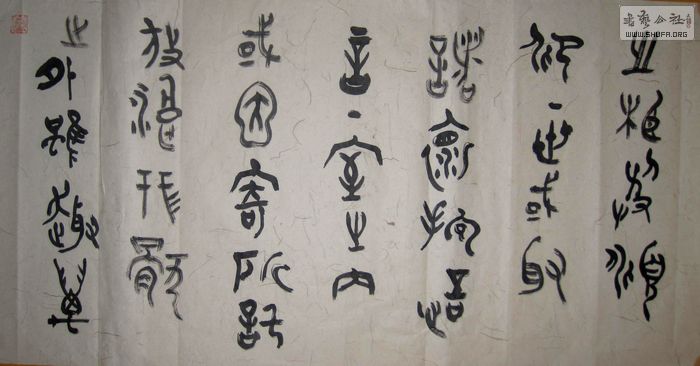 書藝公社
WWW.SHUFA.ORG
之相俯
仰一世或取
諸懷抱悟
言一室之内
或因寄所託
放浪形骸
之外雖趣萬